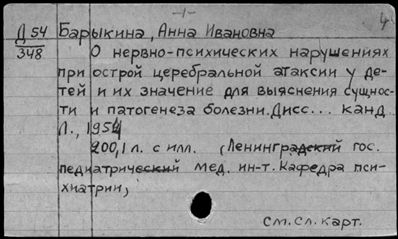 -1-
4
Д 54 Барыкина, Анна Ивановна
348 О нервно-психических нарушениях
при острой церебральной атаксии у де-
тей и их значение для выяснения сущнос-
ти и патогенеза болезни. Дисс... канд.
Л., 1954
200,1 л. с илл. (Ленинградский гос.
педиатрический мед. ин-т. Кафедра пси-
хиатрии)
См. сл. карт.